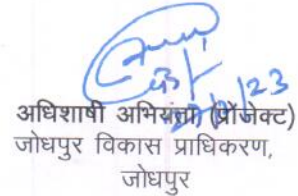 अधिशाषी अभियन्ता (प्रोजेक्ट)
जोधपुर विकास प्राधिकरण,
जोधपुर